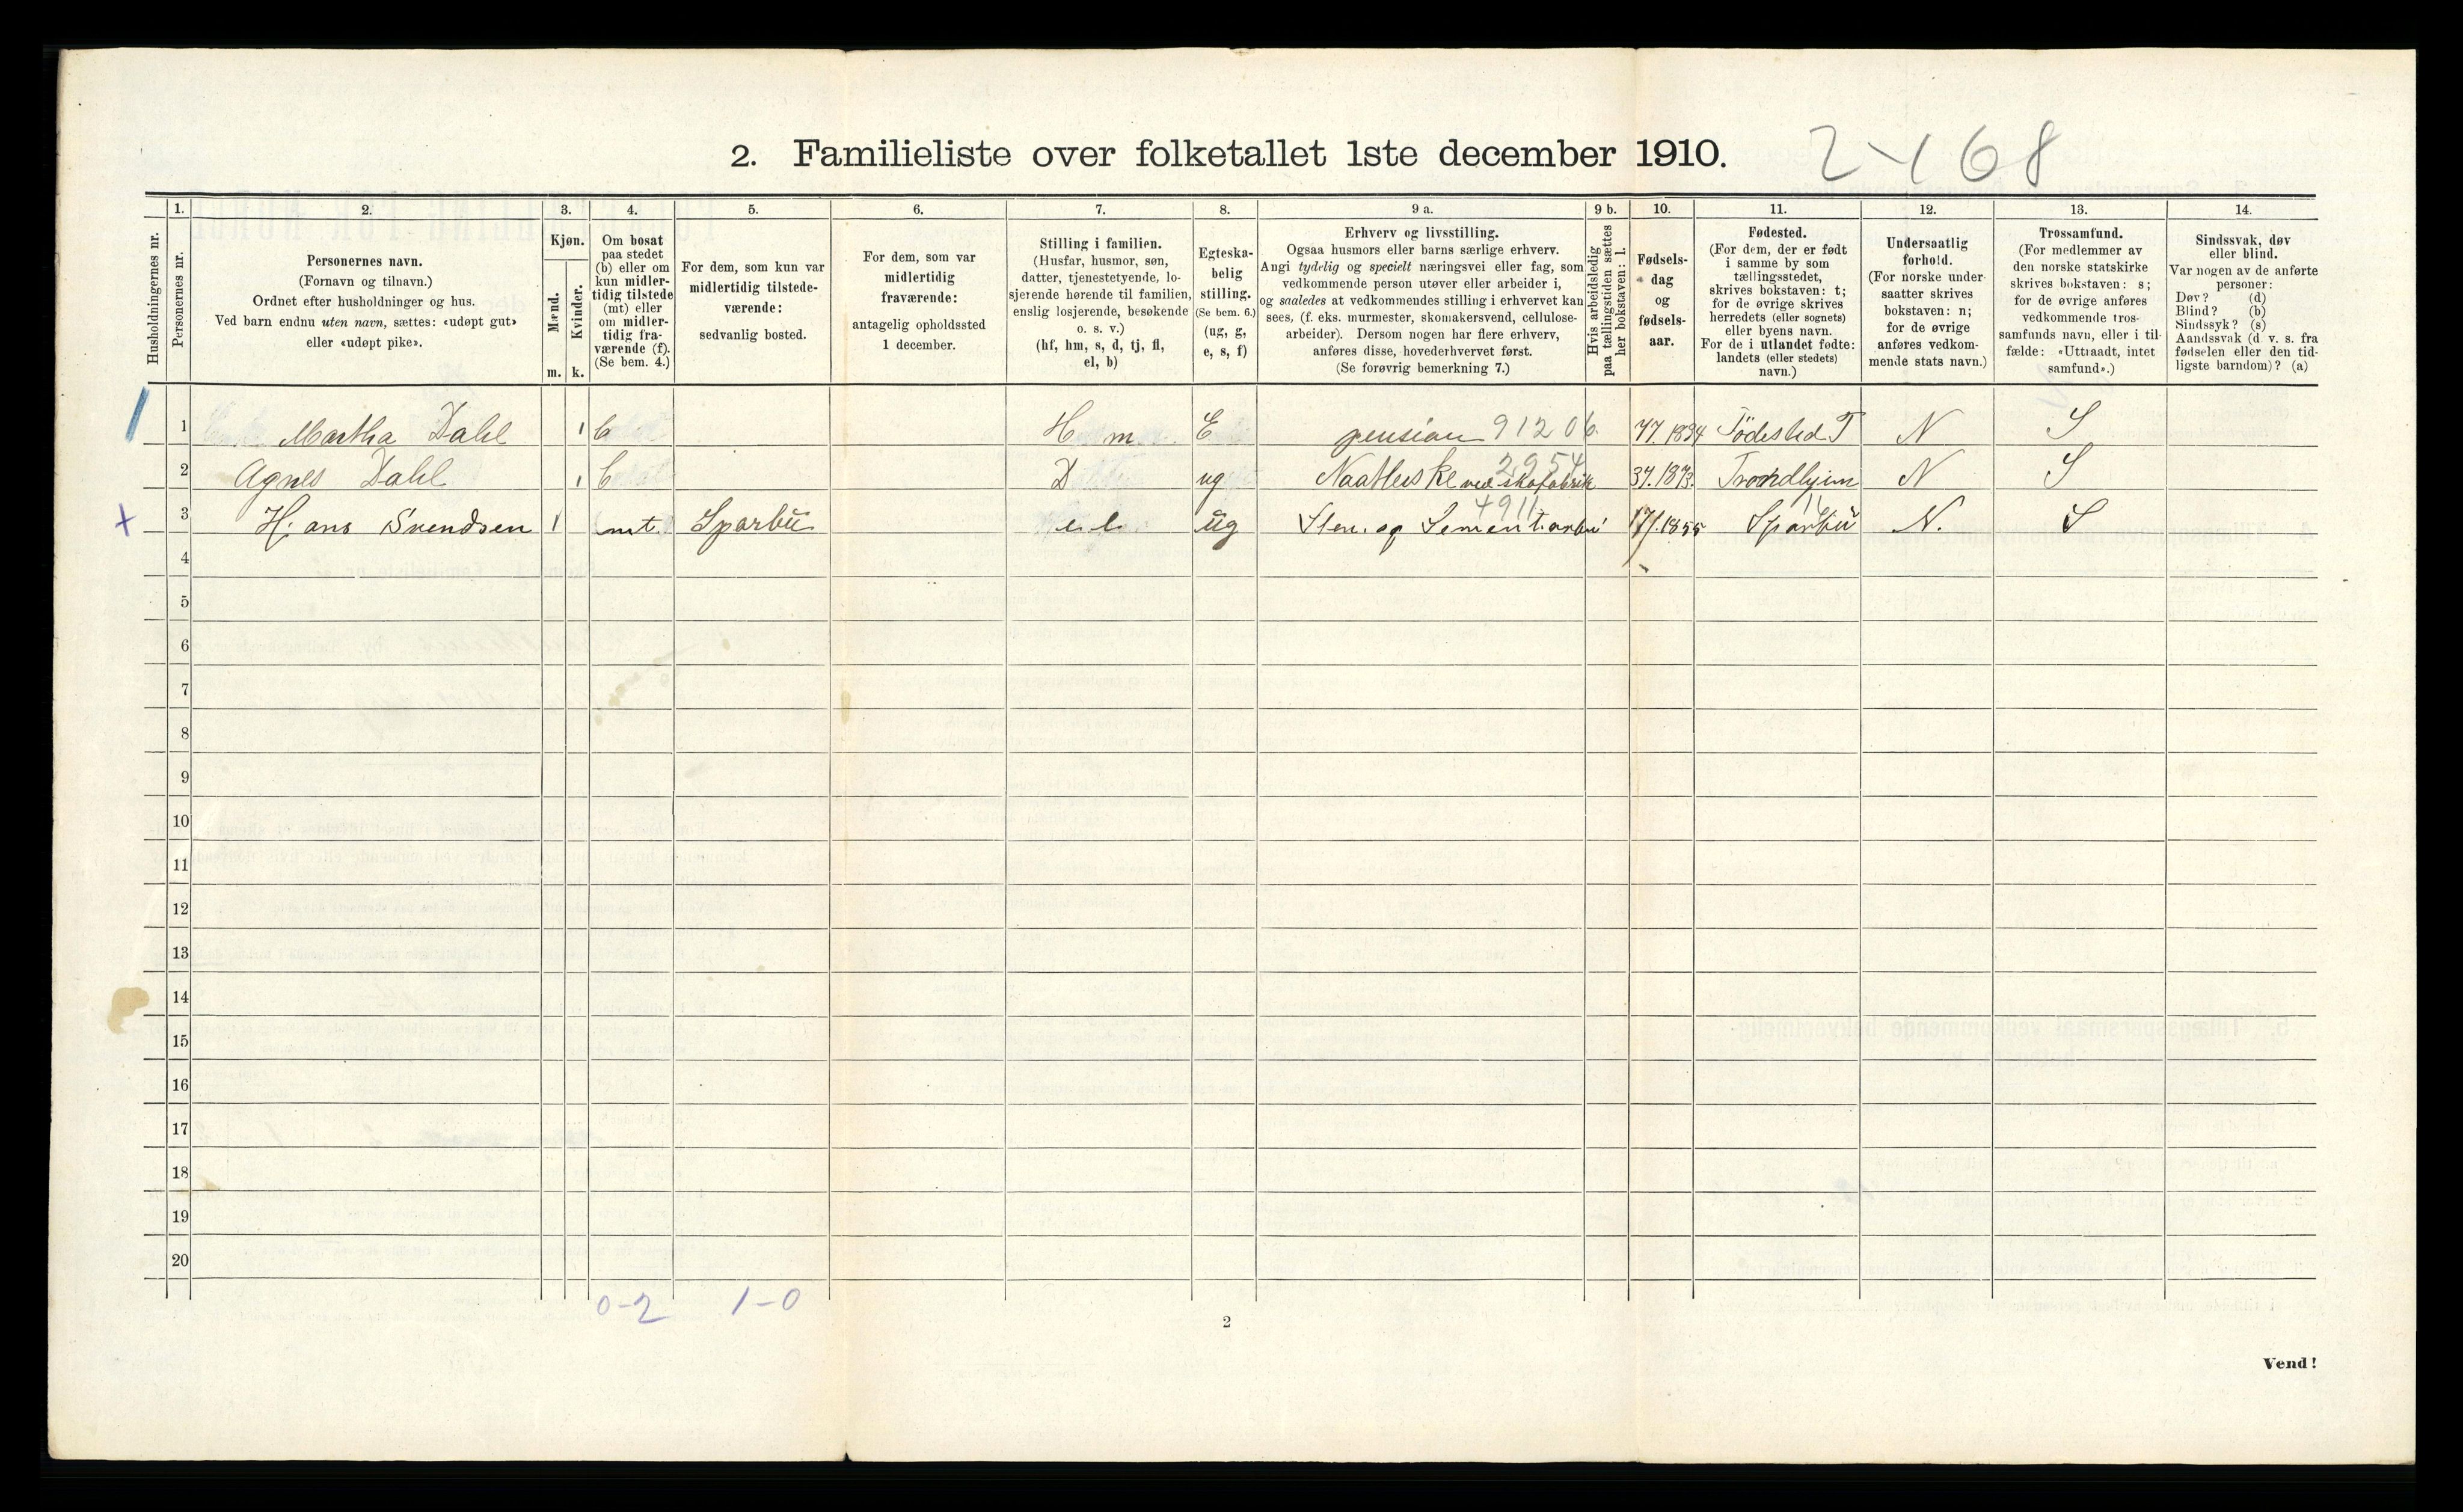 2. Familieliste over folketallet 1ste december 1910. 2468
Husholdningernes nr.
1. Personernes nr.
2. Personernes navn.
(Fornavn og tilnavn.)
Ordnet efter husholdninger og hus.
Ved barn endnu uten navn, sættes: «udøpt gut»
eller «udøpt pike».
3. Kjøn.
Mænd. m.
Kvinder. k.
4. Om bosat
paa stedet
(b) eller om
kun midler-
tidig tilstede
(mt) eller
om midler-
tidig fra-
værende (f).
(Se bem. 4.)
5. For dem, som kun var
midlertidig tilstede-
værende:
sedvanlig bosted.
6. For dem, som var
midlertidig
fraværende:
antagelig opholdssted
1 december.
7. Stilling i familien.
(Husfar, husmor, søn,
datter, tjenestetyende, lo-
sjerende hørende til familien,
enslig losjerende, besøkende
o. s. v.)
(hf, hm, s, d, tj, fl,
el, b)
8. Egteska-
belig
stilling.
(Se bem. 6.)
(ug, g,
e, s, f)
9 a. Erhverv og livsstilling.
Ogsaa husmors eller barns særlige erhverv.
Angi tydelig og specielt næringsvei eller fag, som
vedkommende person utøver eller arbeider i,
og saaledes at vedkommendes stilling i erhvervet kan
sees, (f. eks. murmester, skomakersvend, cellulose-
arbeider). Dersom nogen har flere erhverv,
anføres disse, hovederhvervet først.
(Se forøvrig bemerkning 7.)
9 b. Hvis arbeidsledig
paa tællingstiden sættes
her bokstaven: l.
10. Fødsels-
dag
og
fødsels-
aar.
11. Fødested.
(For dem, der er født
i samme by som
tællingsstedet,
skrives bokstaven: t;
for de øvrige skrives
herredets (eller sognets)
eller byens navn.
For de i utlandet fødte:
landets (eller stedets)
navn.)
12. Undersaatlig
forhold.
(For norske under-
saatter skrives
bokstaven: n;
for de øvrige
anføres vedkom-
mende stats navn.)
13. Trossamfund.
(For medlemmer av
den norske statskirke
skrives bokstaven: s;
for de øvrige anføres
vedkommende tros-
samfunds navn, eller i til-
fælde: «Uttraadt, intet
samfund».)
14. Sindssvak, døv
eller blind.
Var nogen av de anførte
personer:
Døv? (d)
Blind? (b)
Sindssyk? (s)
Aandssvak (d. v. s. fra
fødselen eller den tid-
ligste barndom)? (a)
1 Martha Dahl 1 b H m. E pension 91206 Födested T N S
2 Agnes Dahl 1 b D ug 2954 ved skofabrik 3/7.1873. Trondhjem N S
x 3 Hans Svendsen 1 mt. Sparbu el ug Sten. og Sementarbei 4911 17/1.1855 Sparbu 11 N. S
4
5
6
7
8
9
10
11
12
13
14
15
16
17
18
19
20
0-2 1-0
2
Vend!